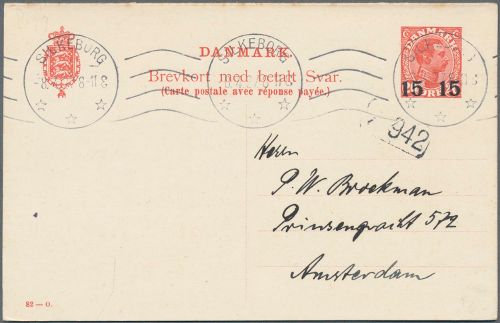 SILKEBORG
DANMARK.
SILKEBORG
DANMARK
Brevkort med betalt Svar.
(Carte postale avec réponse payée.)
8-11 8
15 15
ØRE
942
Herrn
P. W. Broekman
Prinsengracht 572
Amsterdam
82 — O.